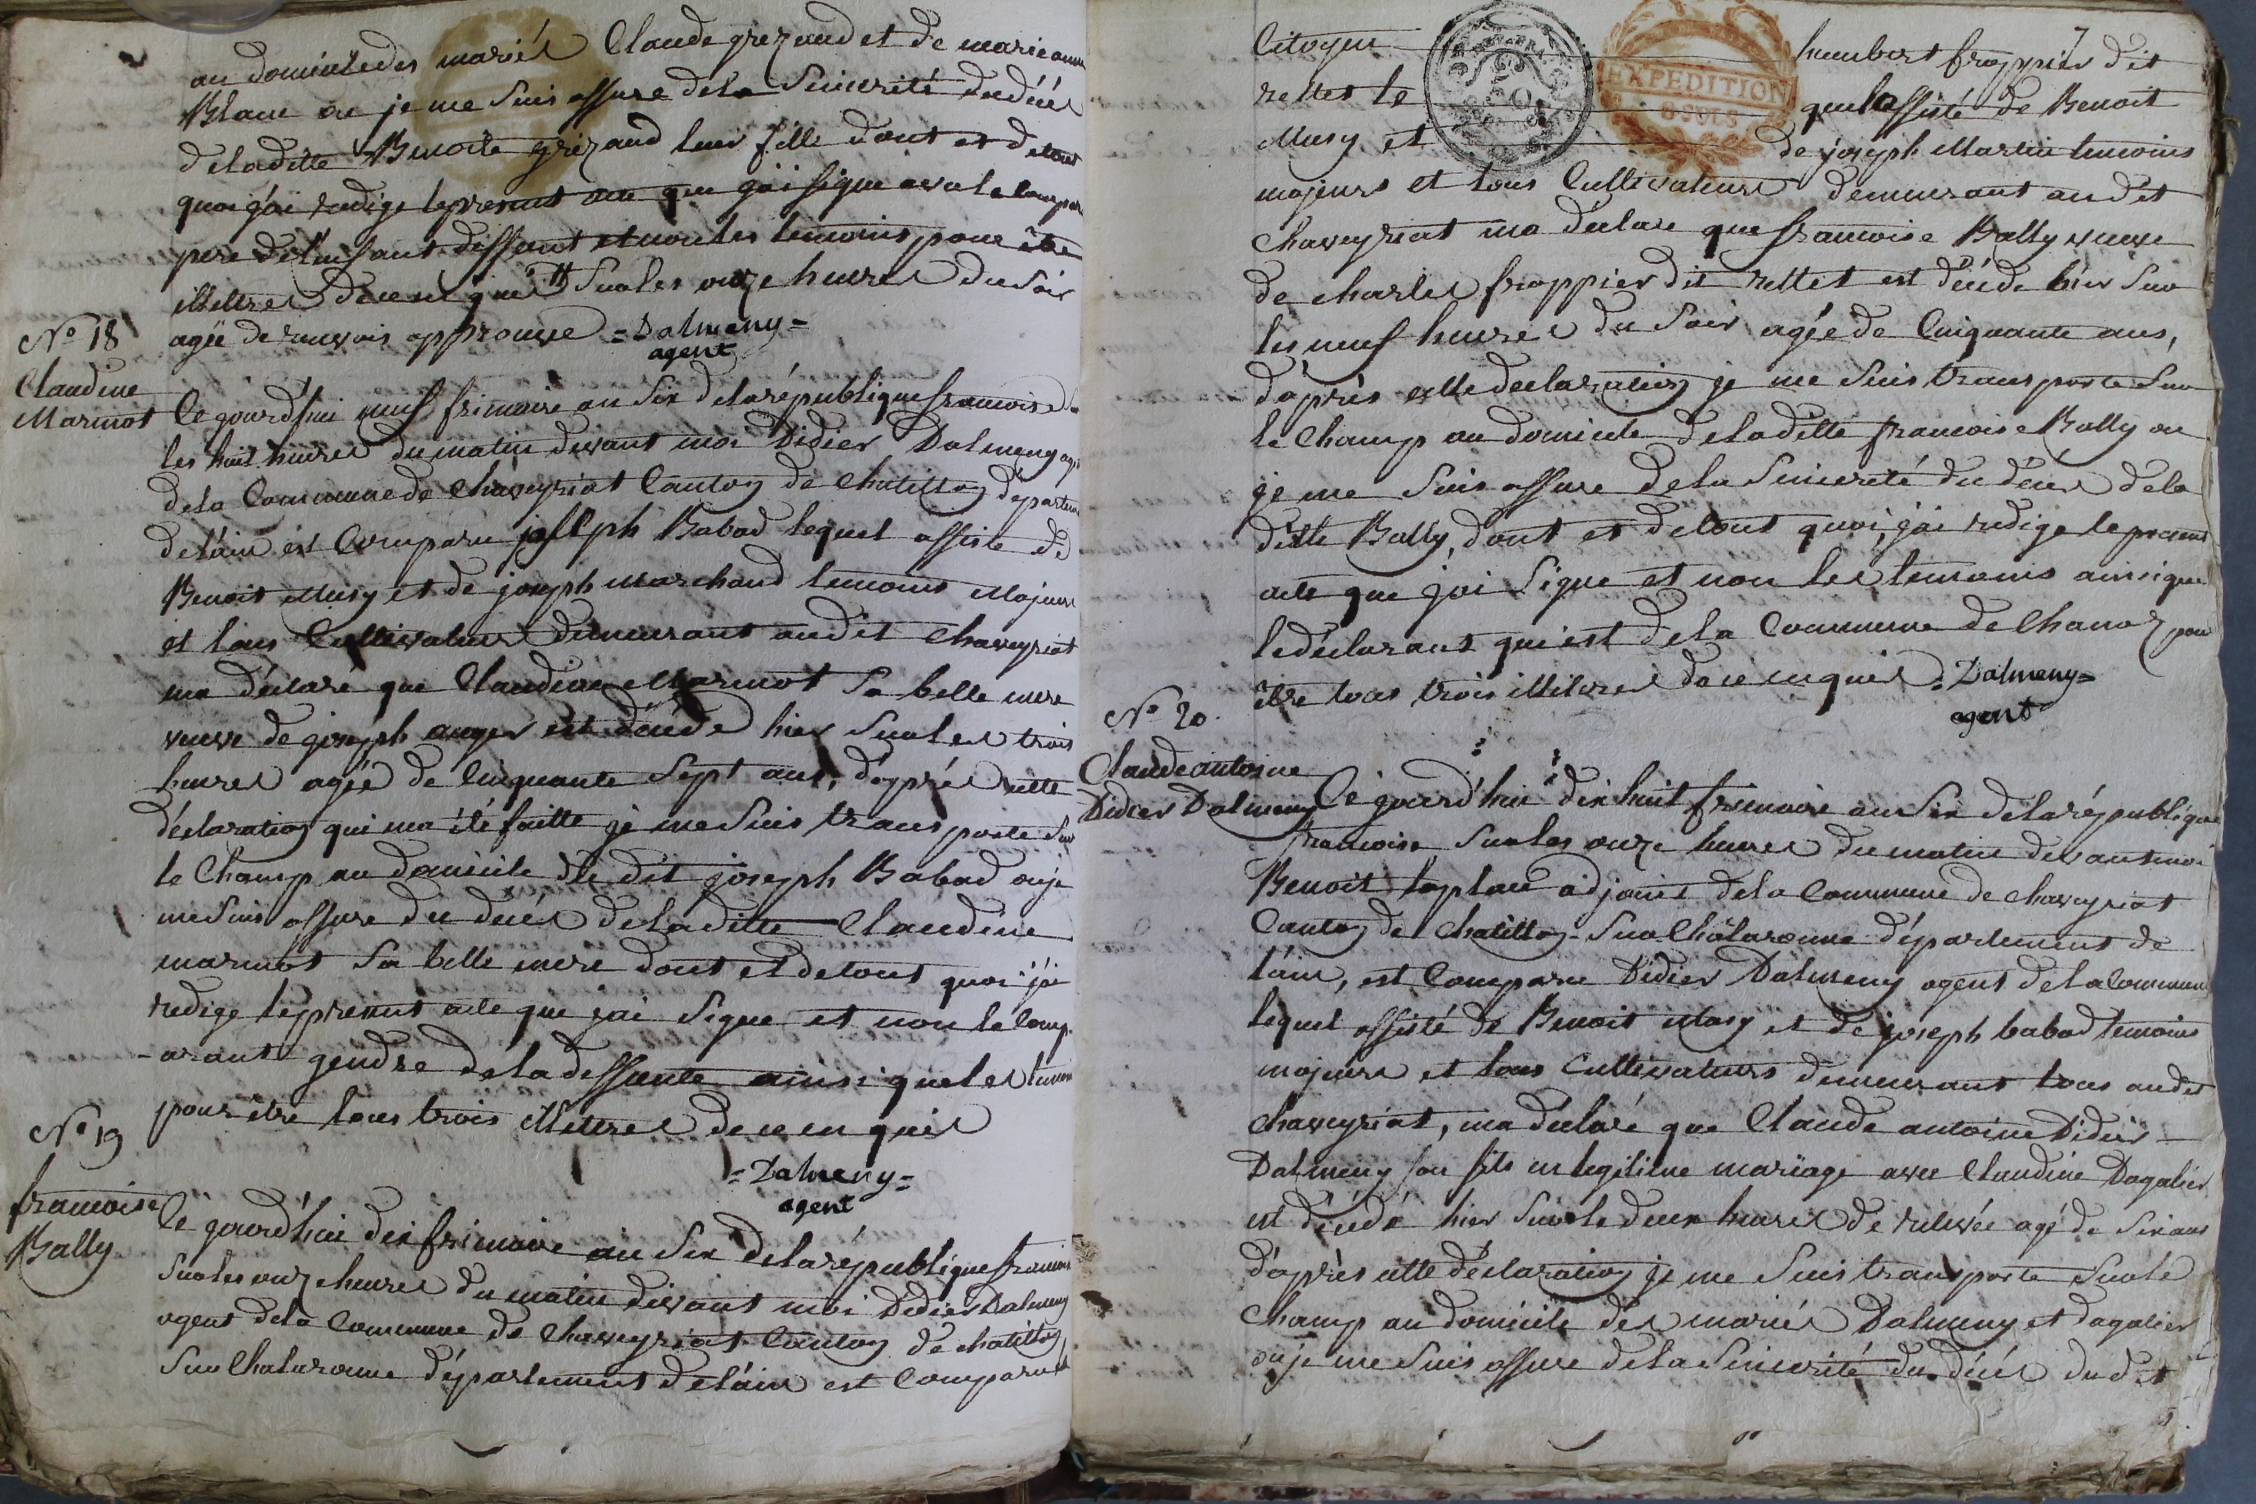 au domicile des mariés Claude grezaud et de marie anne
Blanc ou je me suis assure de la sincerité du décés
de la ditte Benoite grézaud leur fille dont et de tout
quoi j'ai redige le present acte que j'ai signe avec le
pere de l'enfant deffunt et non les temoins pour être
illettres de ce enquis sur les onze heures du soir
agée de approuve = Dalmeny =
agent
No 18
Claudine
Marmot
Ce jourd'hui neuf frimaire an six de la république francoise
les huit heures du matin devant moi Didier Dalmeny
de la Commune de Chaveyriat Canton de Chatillon
de l'ain est Comparu joseph Babad lequel assiste de
Benoit Musy et de joseph marchand temoins Majeurs
et tous Cultivateurs demeurant au dit Chaveyriat
ma déclaré que Claudine Marmot sa belle mere
veuve de joseph auger est décédé hier sur les trois
heures agée de Cinquante Sept ans, d'aprés cette
déclaration qui ma été faitte je me suis transporte sur
le Champ au domicile de dit joseph Babad ou je
me suis assure du décés de la ditte Claudine
marmot sa belle mere dont et de tout quoi j'ai
redige le present acte que j'ai signe et non le comp-
-arant gendre de la deffunte ainsi que les
pour être tous trois illettres de ce en quis
= Dalmeny =
agent
No 19
francoise
Bally
Ce jourd'hui dix frimaire an six de la république
sur les onze heures du matin devant moi Didier Dalmeny
agent de la Commune de Chaveyriat Canton de chatillon
sur Chalaronne département de l'ain est Comparu
7
Citoyen humbert frappier dit
rettet le quel assisté de Benoit
Musy et de joseph Martin temoins
50
EXPEDITION
8 SOLS
majeurs et tous Cultivateurs demeurant au dit
Chaveyriat ma déclare que francoise Bally veuve
de charles frappier dit rettet est décéde hier sur
les neuf heures du soir agée de Cinquante ans,
d'aprés cette declaration je me suis transporte sur
le Champ au domicile de la ditte francoise Bally ou
je me suis assure de la sincerité du décés de la
ditte Bally, dont et de tout quoi, j'ai redige le present
acte que j'ai signe et non les temoins ainsi que
le déclarant qui est de la Commune de Chanoz pour
être tous trois illitires de ce enquis = Dalmeny =
agent
No 20
Claude antoine
Didier Dalmeny
Ce jourd'hui dix huit frimaire an six de la république
francoise sur les onze heures du matin devant moi
Benoit laplace adjoint de la Commune de Chaveyriat
Canton de Chatillon-sur-Chalaronne département de
l'ain, est Comparu Didier Dalmeny agent de la Commune
lequel assisté de Benoit Musy et de joseph babad temoins
majeurs et tous Cultivateurs demeurant tous au dit
Chaveyriat, ma déclaré que Claude antoine Didier
Dalmeny son fils en legitime mariage avec Claudine Dagalier
est décédé hier sur le deux heures de relevée agé de six ans
d'aprés cette déclaration je me suis transporte sur le
Champ au domicile des mariés Dalmeny et dagalier
ou je me suis assure de la sincerité du décés du dit